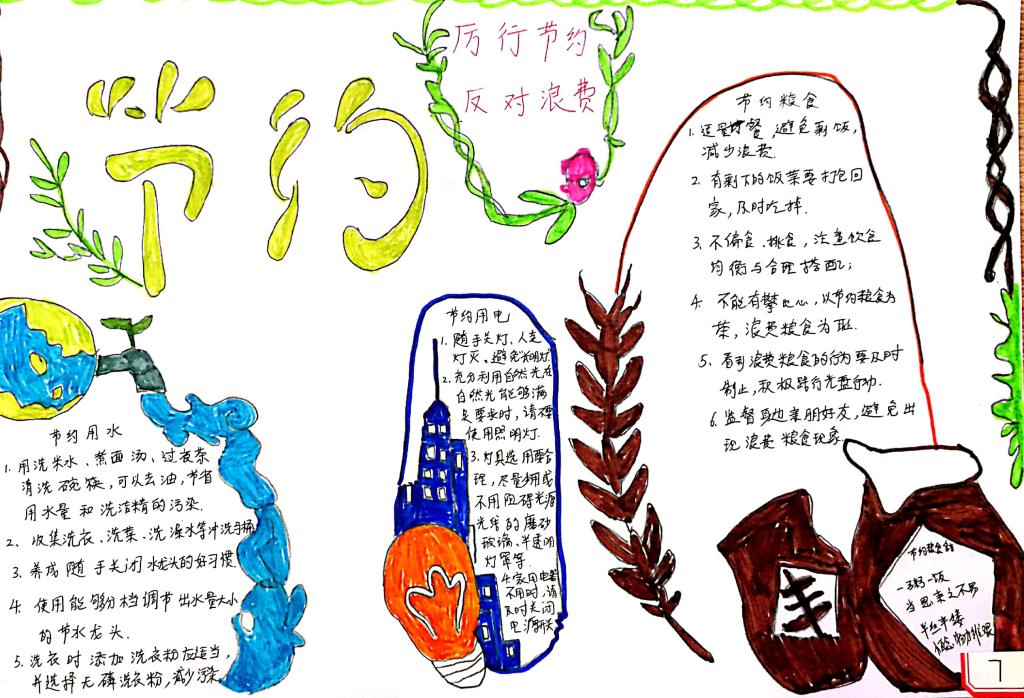 节约
厉行节约
反对浪费
节约用水
1. 用洗米水、煮面汤、过夜茶
清洗碗筷,可以去油,节省
用水量和洗洁精的污染.
2. 收集洗衣、洗菜、洗澡水等冲洗马桶
3. 养成随手关闭水龙头的好习惯.
4. 使用能够分档调节出水量大小
的节水龙头.
5. 洗衣时添加洗衣粉应适当,
并选择无磷洗衣粉,减少污染.
节约用电
1. 随手关灯、人走
灯灭、避免长明灯.
2. 充分利用自然光在
自然光能够满
足要求时,请不要
使用照明灯.
3. 灯具选用要合
理,尽量拥或
不用阻碍光源
光线的磨砂
玻璃、半透明
灯罩等.
4. 家用电器
不用时,请
及时关闭
电源开关
节约粮食
1. 适量
餐,避免剩饭,
减少浪费.
2. 有剩下的饭菜要打包回
家,及时吃掉.
3. 不偏食、挑食,注意饮食
均衡与合理搭配;
4. 不能有攀比心,以节约粮食为
荣,浪费粮食为耻.
5. 看到浪费粮食的行为要及时
制止,积极践行光盘行动.
6. 监督身边亲朋好友,避免出
现浪费粮食现象.
丰
一粥一饭
当思来之不易
半丝半缕
恒念物力维艰
7